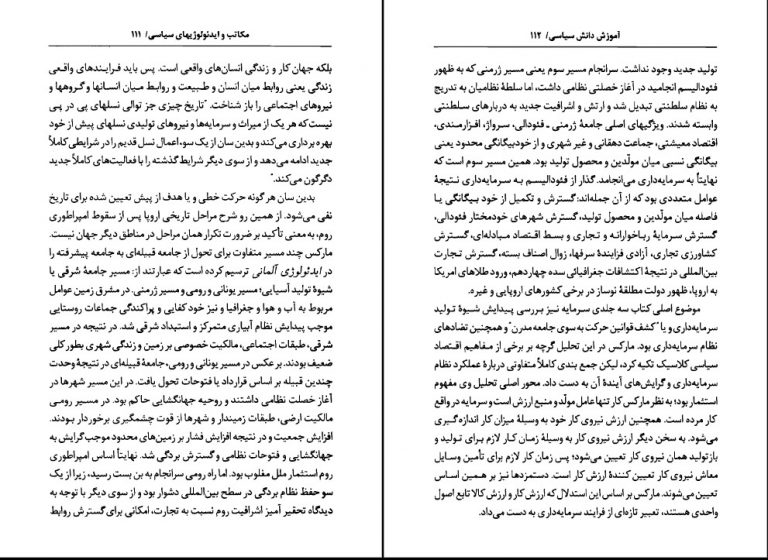 مکاتب و ایدئولوژیهای سیاسی/ ۱۱۱
بلکه جهان کار و زندگی انسان‌های واقعی است. پس باید فرایندهای واقعی
زندگی یعنی روابط میان انسان و طبیعت و روابط میان انسانها و گروهها و
نیروهای اجتماعی را باز شناخت. "تاریخ چیزی جز توالی نسلهای پی در پی
نیست که هر یک از میراث و سرمایه‌ها و نیروهای تولیدی نسلهای پیش از خود
بهره برداری می‌کند و بدین سان از یک سو، اعمال نسل قدیم را در شرایطی کاملاً
جدید ادامه می‌دهد و از سوی دیگر شرایط گذشته را با فعالیت‌های کاملاً جدید
دگرگون می‌کند."
بدین سان هر گونه حرکت خطی و یا هدف از پیش تعیین شده برای تاریخ
نفی می‌شود. از همین رو شرح مراحل تاریخی اروپا پس از سقوط امپراطوری
روم، به معنی تأکید بر ضرورت تکرار همان مراحل در مناطق دیگر جهان نیست.
مارکس چند مسیر متفاوت برای تحول از جامعه قبیله‌ای به جامعه پیشرفته را
در ایدئولوژی آلمانی ترسیم کرده است که عبارتند از: مسیر جامعهٔ شرقی یا
شیوهٔ تولید آسیایی؛ مسیر یونانی و رومی و مسیر ژرمنی. در مشرق زمین عوامل
مربوط به آب و هوا و جغرافیا و نیز خود کفایی و پراکندگی جماعات روستایی
موجب پیدایش نظام آبیاری متمرکز و استبداد شرقی شد. در نتیجه در مسیر
شرقی، طبقات اجتماعی، مالکیت خصوصی بر زمین و زندگی شهری بطور کلی
ضعیف بودند. بر عکس در مسیر یونانی و رومی، جامعهٔ قبیله‌ای در نتیجهٔ وحدت
چندین قبیله بر اساس قرارداد یا فتوحات تحول یافت. در این مسیر شهرها در
آغاز خصلت نظامی داشتند و روحیه جهانگشایی حاکم بود. در مسیر رومی
مالکیت ارضی، طبقات زمیندار و شهرها از قوت چشمگیری برخوردار بودند.
افزایش جمعیت و در نتیجه افزایش فشار بر زمین‌های محدود موجب گرایش به
جهانگشایی و فتوحات نظامی و گسترش بردگی شد. نهایتاً اساس امپراطوری
روم استثمار ملل مغلوب بود. اما راه رومی سرانجام به بن بست رسید، زیرا از یک
سو حفظ نظام بردگی در سطح بین‌المللی دشوار بود و از سوی دیگر با توجه به
دیدگاه تحقیر آمیز اشرافیت روم نسبت به تجارت، امکانی برای گسترش روابط
آموزش دانش سیاسی/ ۱۱۲
تولید جدید وجود نداشت. سرانجام مسیر سوم یعنی مسیر ژرمنی که به ظهور
فئودالیسم انجامید در آغاز خصلتی نظامی داشت، اما سلطهٔ نظامیان به تدریج
به نظام سلطنتی تبدیل شد و ارتش و اشرافیت جدید به دربارهای سلطنتی
وابسته شدند. ویژگیهای اصلی جامعهٔ ژرمنی ـ فئودالی، سرواژ، افزارمندی،
اقتصاد معیشتی، جماعت دهقانی و غیر شهری و از خودبیگانگی محدود یعنی
بیگانگی نسبی میان مولّدین و محصول تولید بود. همین مسیر سوم است که
نهایتاً به سرمایه‌داری می‌انجامد. گذار از فئودالیسم به سرمایه‌داری نتیجهٔ
عوامل متعددی بود که از آن جمله‌اند: گسترش و تکمیل از خود بیگانگی یا
فاصله میان مولّدین و محصول تولید، گسترش شهرهای خودمختار فئودالی،
گسترش سرمایهٔ رباخوارانه و تجاری و بسط اقتصاد مبادله‌ای، گسترش
کشاورزی تجاری، آزادی فزایندهٔ سرفها، زوال اصناف بسته، گسترش تجارت
بین‌المللی در نتیجهٔ اکتشافات جغرافیائی سده چهاردهم، ورود طلاهای امریکا
به اروپا، ظهور دولت مطلقهٔ نوساز در برخی کشورهای اروپایی و غیره.
موضوع اصلی کتاب سه جلدی سرمایه نیز بررسی پیدایش شیوهٔ تولید
سرمایه‌داری و یا "کشف قوانین حرکت به سوی جامعه مدرن" و همچنین تضادهای
نظام سرمایه‌داری بود. مارکس در این تحلیل گرچه بر برخی از مفاهیم اقتصاد
سیاسی کلاسیک تکیه کرد، لیکن جمع بندی کاملاً متفاوتی دربارهٔ عملکرد نظام
سرمایه‌داری و گرایش‌های آیندهٔ آن به دست داد. محور اصلی تحلیل وی مفهوم
استثمار بود؛ به نظر مارکس کار تنها عامل مولّد و منبع ارزش است و سرمایه در واقع
کار مرده است. همچنین ارزش نیروی کار خود به وسیلهٔ میزان کار اندازه‌گیری
می‌شود. به سخن دیگر ارزش نیروی کار به وسیلهٔ زمان کار لازم برای تولید و
بازتولید همان نیروی کار تعیین می‌شود؛ پس زمان کار لازم برای تأمین وسایل
معاش نیروی کار تعیین کنندهٔ ارزش کار است. دستمزدها نیز بر همین اساس
تعیین می‌شوند. مارکس بر اساس این استدلال که ارزش کار و ارزش کالا تابع اصول
واحدی هستند، تعبیر تازه‌ای از فرایند سرمایه‌داری به دست می‌داد.